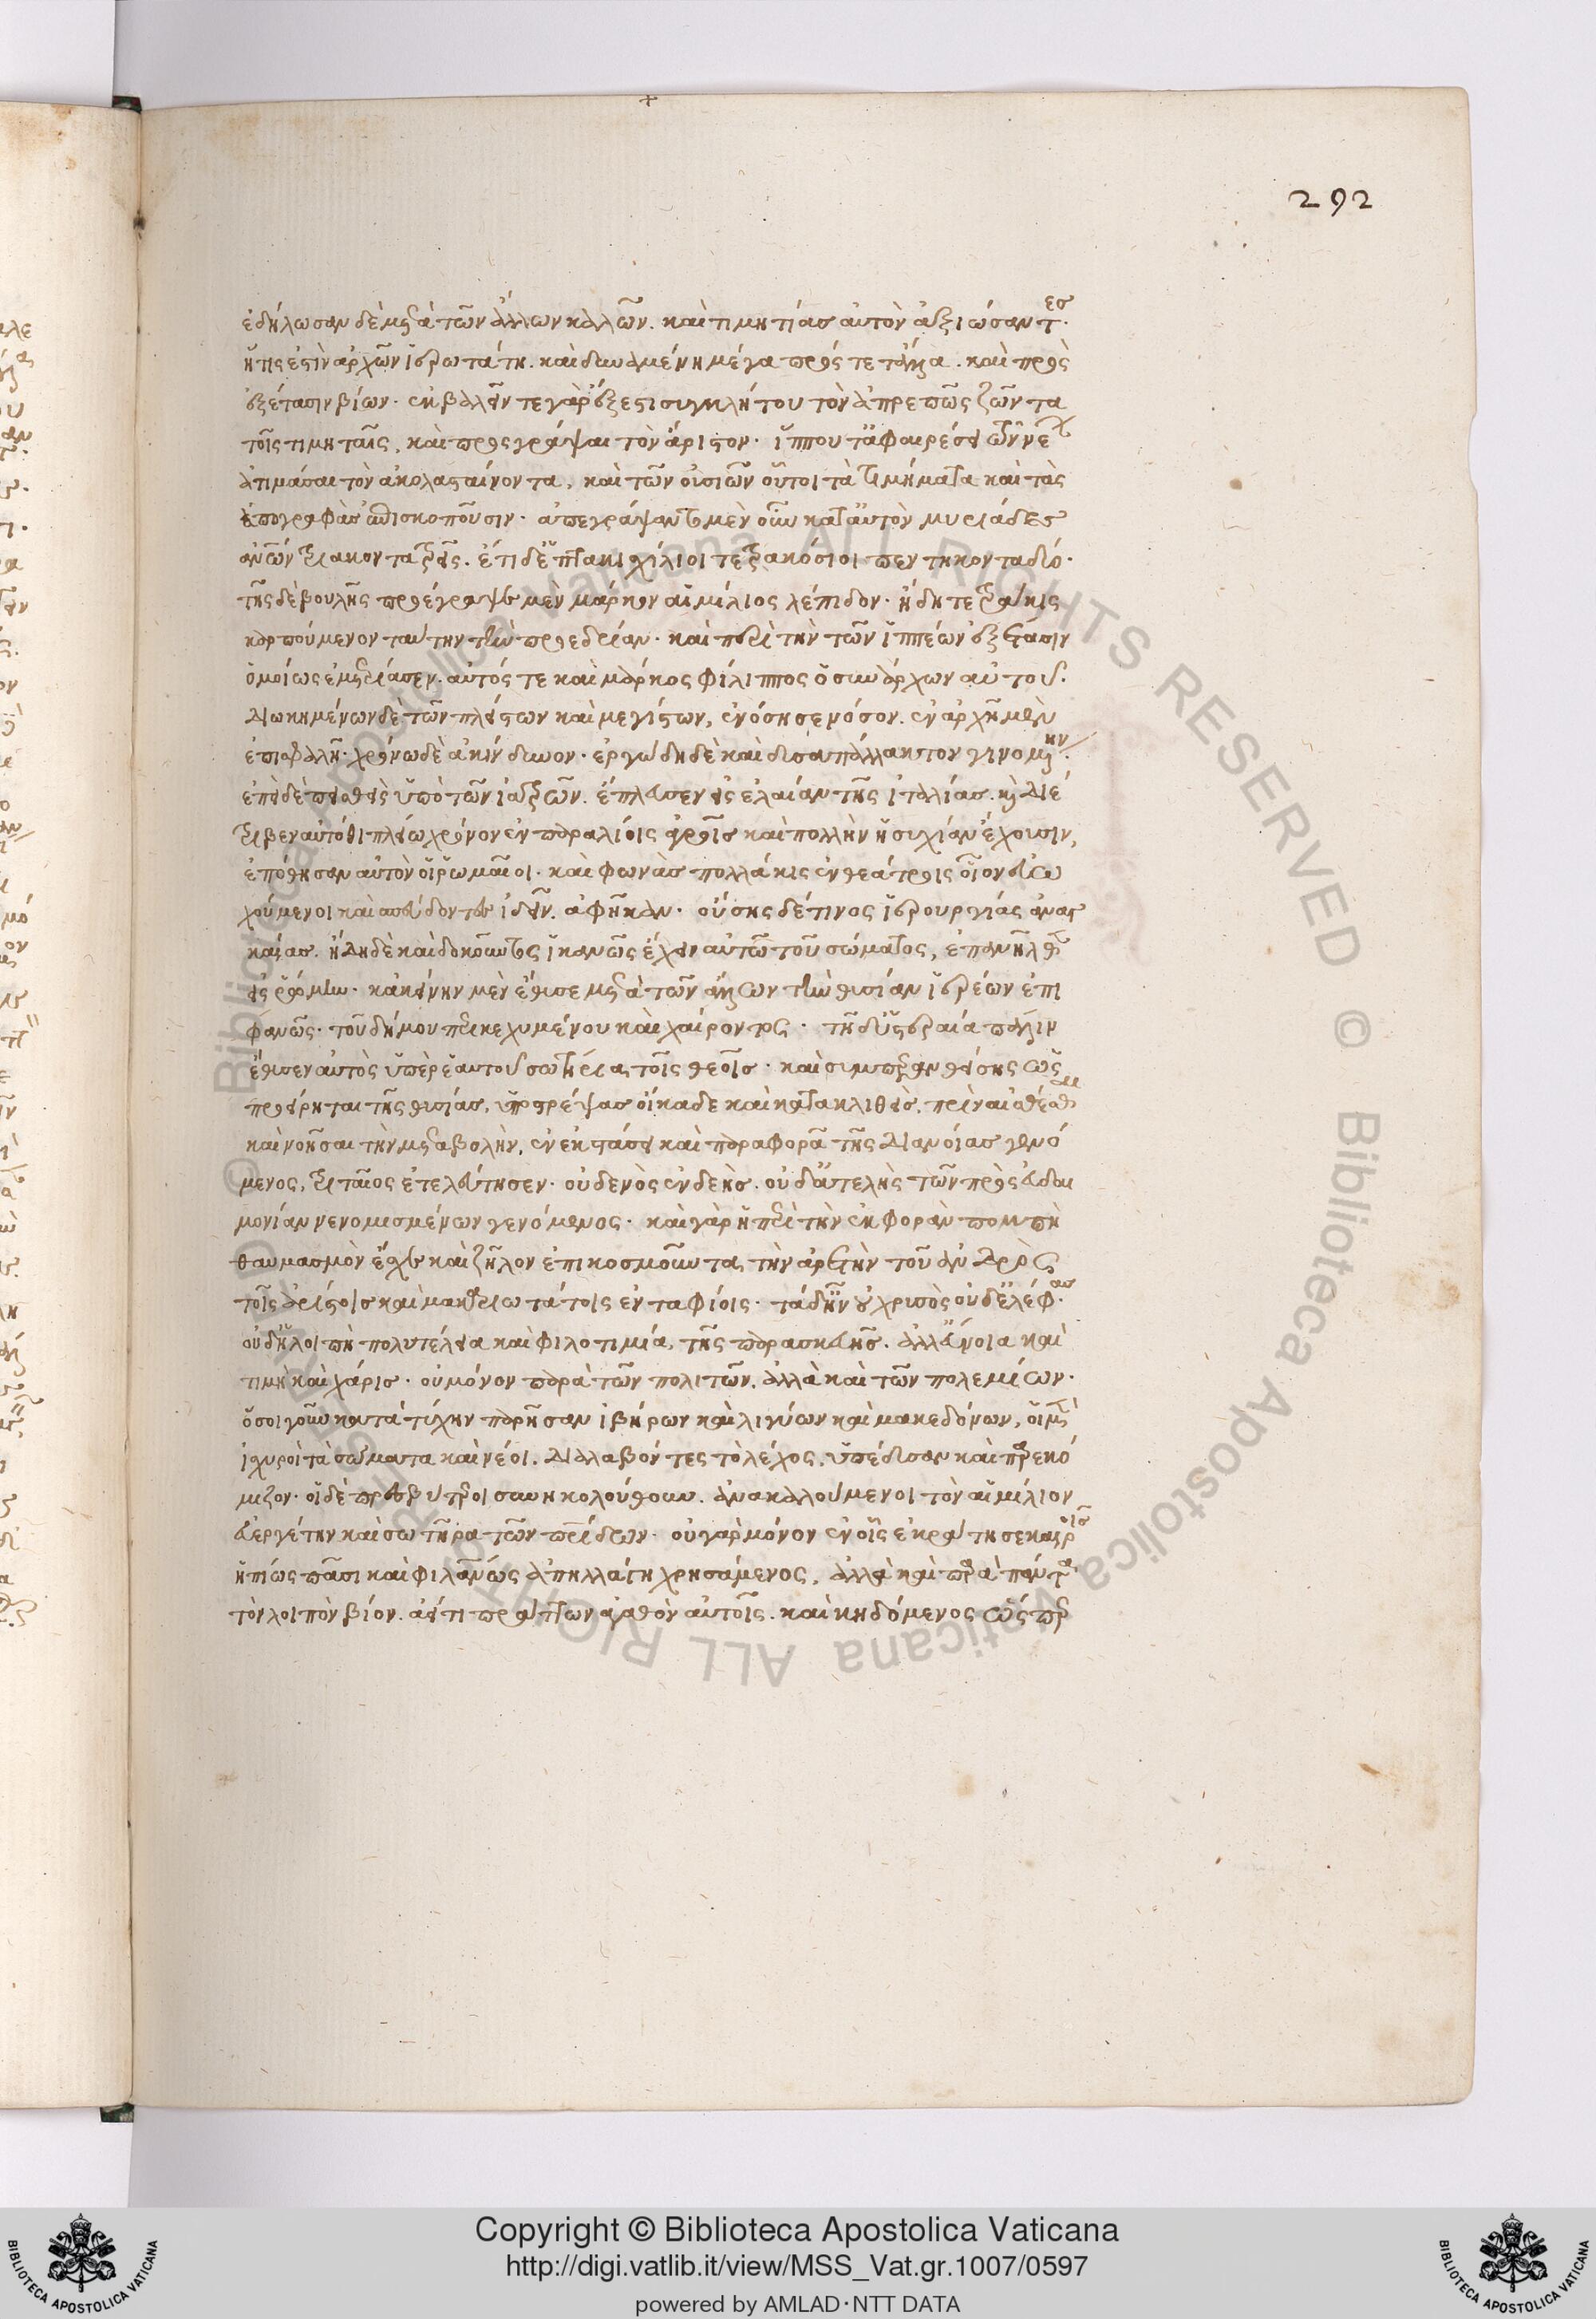 292
ἐδήλωσαν δὲ μετὰ τῶν ἄλλων καλῶν. καὶ τιμητίας αὐτὸν ἀξιώσαντες.
ἥτις ἐστὶν ἀρχῶν ἱερωτάτη. καὶ δυναμένη μέγα πρός τε τἄλλα. καὶ πρὸς
ἐξέτασιν βίων. ἐκβαλεῖν τε γὰρ ἔξεστι συγκλήτου τὸν ἀπρεπῶς ζῶντα
τοῖς τιμηταῖς, καὶ προσγράψαι τὸν ἄριστον. ἵππου τ' ἀφαιρέσει τῶν νέων
ἀτιμάσαι τὸν ἀκολασταίνοντα, καὶ τῶν οὐσιῶν οὗτοι τὰ τιμήματα καὶ τὰς
ἀπογραφὰς ἐπισκοποῦσιν. ἀπεγράψαντο μὲν οὖν κατ' αὐτὸν μυριάδες
ἀνθρώπων τριακοντατρεῖς. ἔτι δ' ἑπτακισχίλιοι τετρακόσιοι πεντηκονταδύο.
τῆς δὲ βουλῆς προέγραψε μὲν μάρκον αἰμίλιος λέπιδον. ἤδη τετράκις
καρπούμενον ταύτην τὴν προεδρίαν. καὶ περὶ τὴν τῶν ἱππέων ἐξέτασιν
ὁμοίως ἐμετρίασεν. αὐτός τε καὶ μάρκος φίλιππος ὁ συνάρχων αὐτοῦ.
διωκημένων δὲ τῶν πλείστων καὶ μεγίστων, ἐνόσησε νόσον. ἐν ἀρχῇ μὲν
ἐπισφαλῆ. χρόνω δὲ ἀκίνδυνον. ἐργώδη δὲ καὶ δυσαπάλλακτον γινομένην.
ἐπεὶ δὲ πεισθεὶς ὑπὸ τῶν ἰατρῶν. ἔπλευσεν εἰς ἐλαίαν τῆς ἰταλίας. καὶ διέ
τριβεν αὐτόθι πλείω χρόνον ἐν παραλίοις ἀγροῖς καὶ πολλὴν ἡσυχίαν ἔχουσιν,
ἐπόθησαν αὐτὸν οἱ ῥωμαῖοι. καὶ φωνὰς πολλάκις ἐν θεάτροις οἷον εὐ
χόμενοι καὶ σπεύδοντες ἰδεῖν. ἀφῆκαν. οὔσης δέ τινος ἱερουργίας ἀναγ
καίας. ἤδη δὲ καὶ δοκοῦντος ἱκανῶς ἔχειν αὐτῶ τοῦ σώματος, ἐπανῆλθεν
εἰς ῥώμην. κἀκείνην μὲν ἔθυσε μετὰ τῶν ἄλλων τὴν θυσίαν ἱερέων ἐπι
φανῶς. τοῦ δήμου περικεχυμένου καὶ χαίροντος. τῆ δ' ὑστεραία πάλιν
ἔθυσεν αὐτὸς ὑπὲρ ἑαυτοῦ σωτήρια τοῖς θεοῖς. καὶ συμπερανθείσης ὡς
προείρηται τῆς θυσίας, ὑποστρέψας οἴκαδε καὶ κατακλιθείς. πρὶν αἰσθέσθαι
καὶ νοῆσαι τὴν μεταβολὴν, ἐν ἐκστάσει καὶ παραφορᾶ τῆς διανοίας γενό
μενος, τριταῖος ἐτελεύτησεν. οὐδενὸς ἐνδεὴς. οὐδ' ἀτελὴς τῶν πρὸς εὐδαι
μονίαν νενομισμένων γενόμενος. καὶ γὰρ ἡ περὶ τὴν ἐκφορὰν πομπὴ
θαυμασμὸν ἔσχε καὶ ζῆλον ἐπικοσμοῦντα, τὴν ἀρετὴν τοῦ ἀνδρὸς
τοῖς ἀρίστοις καὶ μακαριωτάτοις ἐνταφίοις. τά δ' ἦν οὐ χρυσὸς οὐδ' ἐλέφας.
οὐδ' ἡ λοιπὴ πολυτέλεια καὶ φιλοτιμία, τῆς παρασκευῆς. ἀλλ' εὔνοια καὶ
τιμὴ καὶ χάρις. οὐ μόνον παρὰ τῶν πολιτῶν. ἀλλὰ καὶ τῶν πολεμίων.
ὅσοι γοῦν κατὰ τύχην παρῆσαν ἰβήρων καὶ λιγύων καὶ μακεδόνων, οἱ μὲν
ἰσχυροὶ τὰ σώματα καὶ νέοι. διαλαβόντες τὸ λέχος, ὑπέδυσαν καὶ παρεκό
μιζον. οἱ δὲ πρεσβύτεροι συνηκολούθουν. ἀνακαλούμενοι τὸν αἰμίλιον
εὐεργέτην καὶ σωτῆρα τῶν πατρίδων. οὐ γὰρ μόνον ἐν οἷς ἐκράτησε καιροῖς
ἠπίως πᾶσι καὶ φιλανθρώπως ἀπηλλάγη χρησάμενος, ἀλλὰ καὶ παρὰ πάντα
τὸν λοιπὸν βίον. ἀεί τι πράττων ἀγαθὸν αὐτοῖς. καὶ κηδόμενος ὥσπερ
Copyright © Biblioteca Apostolica Vaticana
http://digi.vatlib.it/view/MSS_Vat.gr.1007/0597
powered by AMLAD·NTT DATA